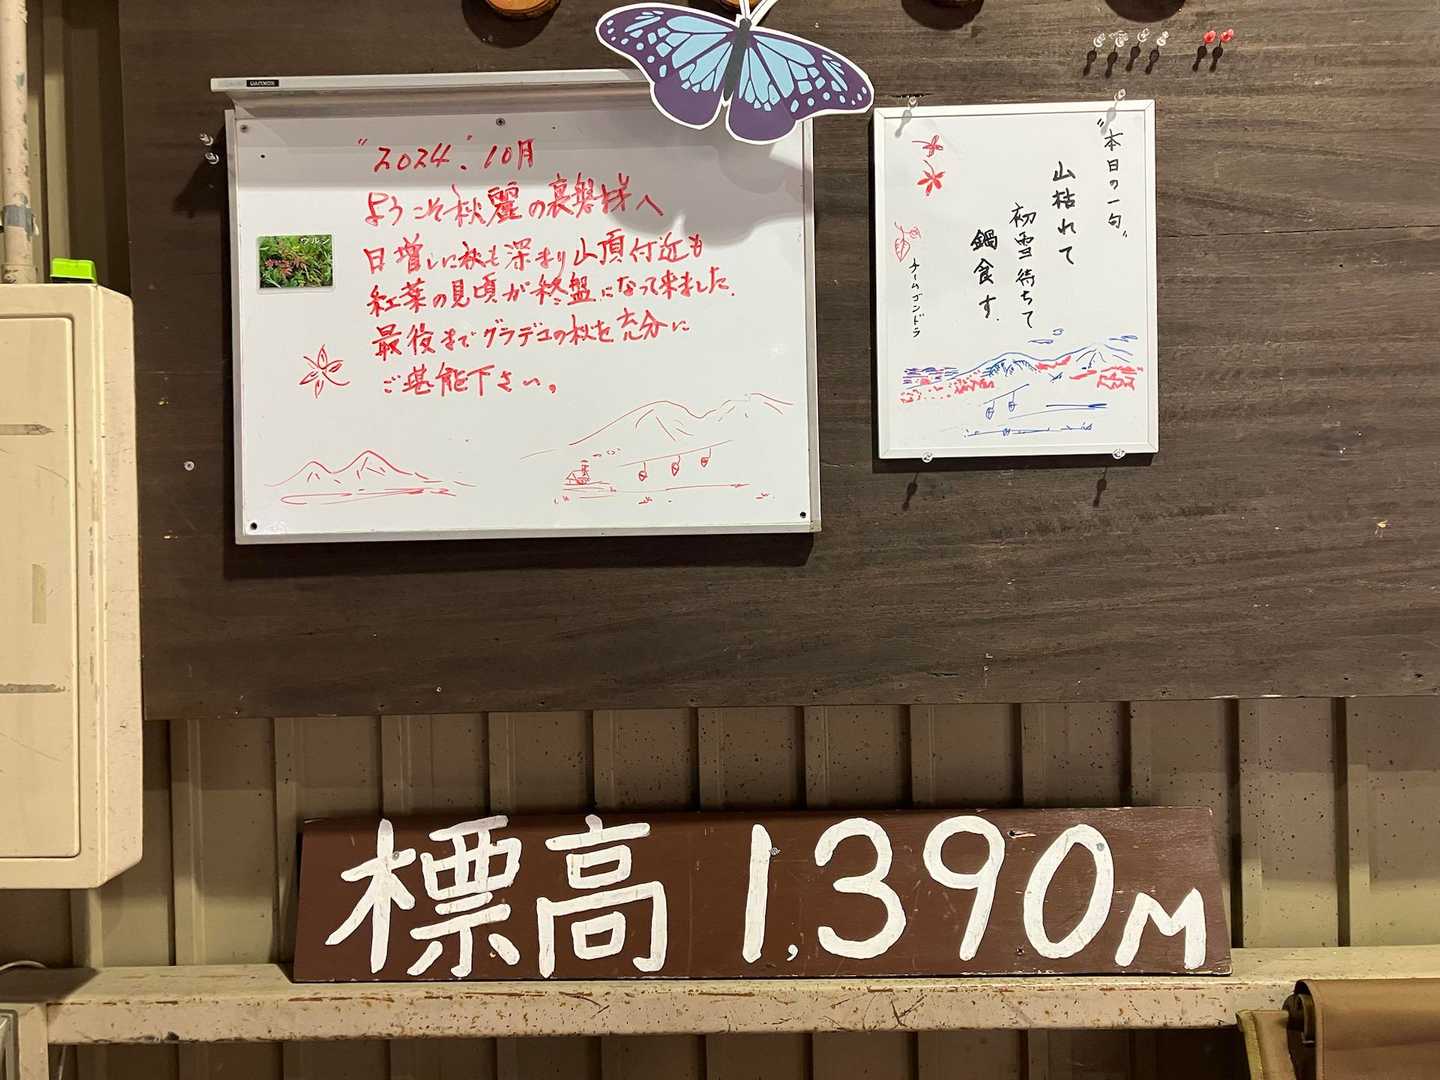 "2024". 10月
ようこそ秋麗の裏磐梯へ
日増しに秋も深まり山頂付近も
紅葉の見頃が終盤になって来ました.
最後までグラデコの秋を充分に
ご堪能下さい。
ウルシ
"本日の一句"
山枯れて
初雪待ちて
鍋食す.
チームゴンドラ
標高 1,390M